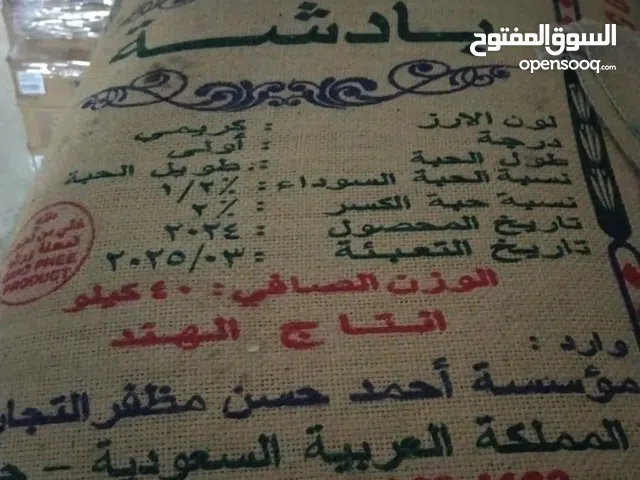 السوق المفتوح
opensooq.com
بادشة
لون الارز : كريمي
درجة : أولى
طول الحبة : طويل الحبة
نسبة الحبة السوداء : ١/٢٪
نسبة حبة الكسر : ٢٪
تاريخ المحصول : ٢٠٢٤
تاريخ التعبئة : ٢٠٢٥/٠٣
الوزن الصافي : ٤٠ كيلو
انتاج الهند
وارد :
مؤسسة أحمد حسن مظفر التجار
المملكة العربية السعودية -
PRODUCT